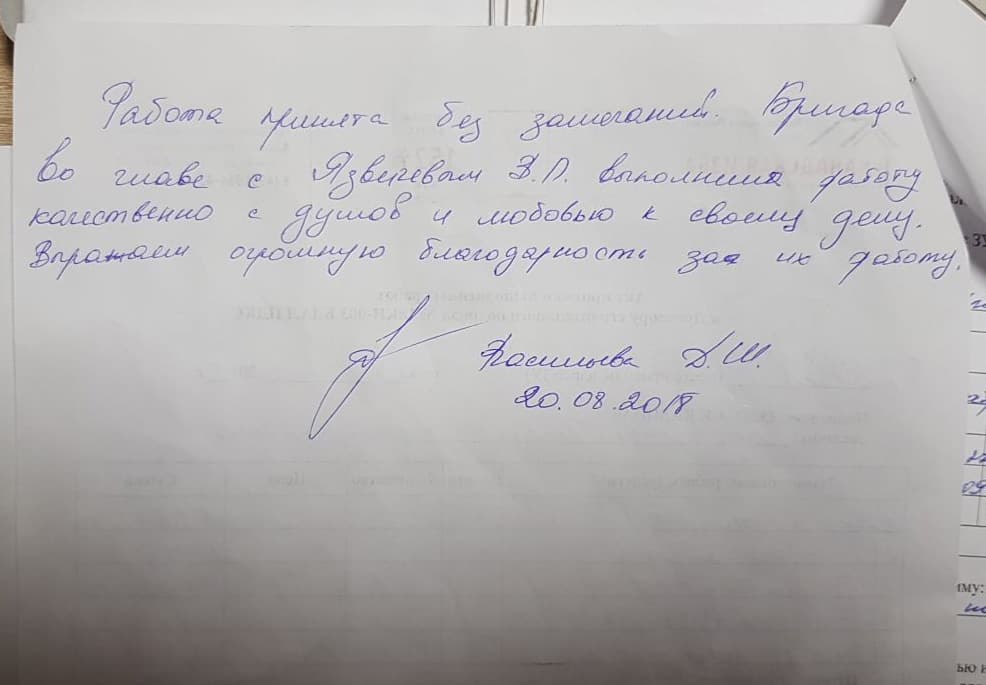 Работа принята без замечаний. Бригада
во главе с Язвечевым В.П. выполнила работу
качественно с душой и любовью к своему делу.
Выражаем огромную благодарность за их работу.
Д.Ш.
20.08.2018